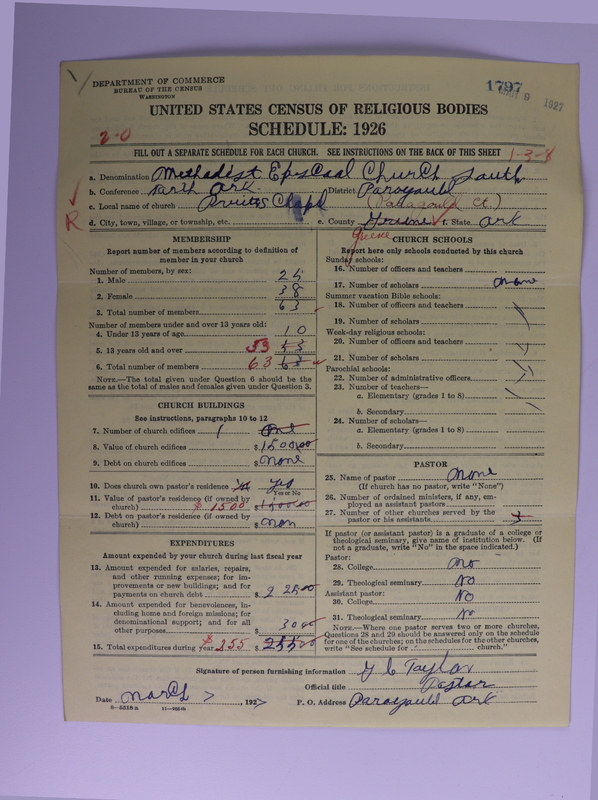 DEPARTMENT OF COMMERCE
BUREAU OF THE CENSUS
WASHINGTON
1797
MAR 9 1927
UNITED STATES CENSUS OF RELIGIOUS BODIES
SCHEDULE: 1926
2-0
FILL OUT A SEPARATE SCHEDULE FOR EACH CHURCH. SEE INSTRUCTIONS ON THE BACK OF THIS SHEET
1-3-8
a. Denomination Methodist Epscoal Church South
b. Conference North Ark. District Paragould
c. Local name of church Pruits Chapl (Paragould Ct.)
R
d. City, town, village, or township, etc. e. County Grune f. State Ark
Greene
MEMBERSHIP
Report number of members according to definition of member in your church
Number of members, by sex:
1. Male 25
2. Female 38
3. Total number of members 63
Number of members under and over 13 years old:
4. Under 13 years of age 10
5. 13 years old and over 53 53
6. Total number of members 63 63
NOTE.—The total given under Question 6 should be the same as the total of males and females given under Question 3.
CHURCH BUILDINGS
See instructions, paragraphs 10 to 12
7. Number of church edifices 1 One
8. Value of church edifices $ 1500.00
9. Debt on church edifices $ None
10. Does church own pastor's residence Yes
Yes or No
11. Value of pastor's residence (if owned by church) $ 1500 1500.00
12. Debt on pastor's residence (if owned by church) $ Non
EXPENDITURES
Amount expended by your church during last fiscal year
13. Amount expended for salaries, repairs, and other running expenses; for improvements or new buildings; and for payments on church debt $ 225.00
14. Amount expended for benevolences, including home and foreign missions; for denominational support; and for all other purposes $ 30.00
15. Total expenditures during year $255 $ 255.00
CHURCH SCHOOLS
Report here only schools conducted by this church
Sunday schools:
16. Number of officers and teachers
17. Number of scholars None
Summer vacation Bible schools:
18. Number of officers and teachers
19. Number of scholars
Week-day religious schools:
20. Number of officers and teachers
21. Number of scholars
Parochial schools:
22. Number of administrative officers
23. Number of teachers—
a. Elementary (grades 1 to 8)
b. Secondary
24. Number of scholars—
a. Elementary (grades 1 to 8)
b. Secondary
PASTOR
25. Name of pastor None
(If church has no pastor, write "None")
26. Number of ordained ministers, if any, employed as assistant pastors
27. Number of other churches served by the pastor or his assistants 3
If pastor (or assistant pastor) is a graduate of a college or theological seminary, give name of institution below. (If not a graduate, write "No" in the space indicated.)
Pastor:
28. College No
29. Theological seminary No
Assistant pastor:
30. College No
31. Theological seminary No
NOTE.—Where one pastor serves two or more churches, Questions 28 and 29 should be answered only on the schedule for one of the churches; on the schedules for the other churches, write "See schedule for church."
Signature of person furnishing information Y C Taylor
Official title Pastor
Date March 7, 1927 P. O. Address Paragould Ark
8-5518a 11-9504b